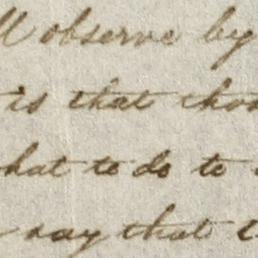 observe by
is that
what to do to
say that